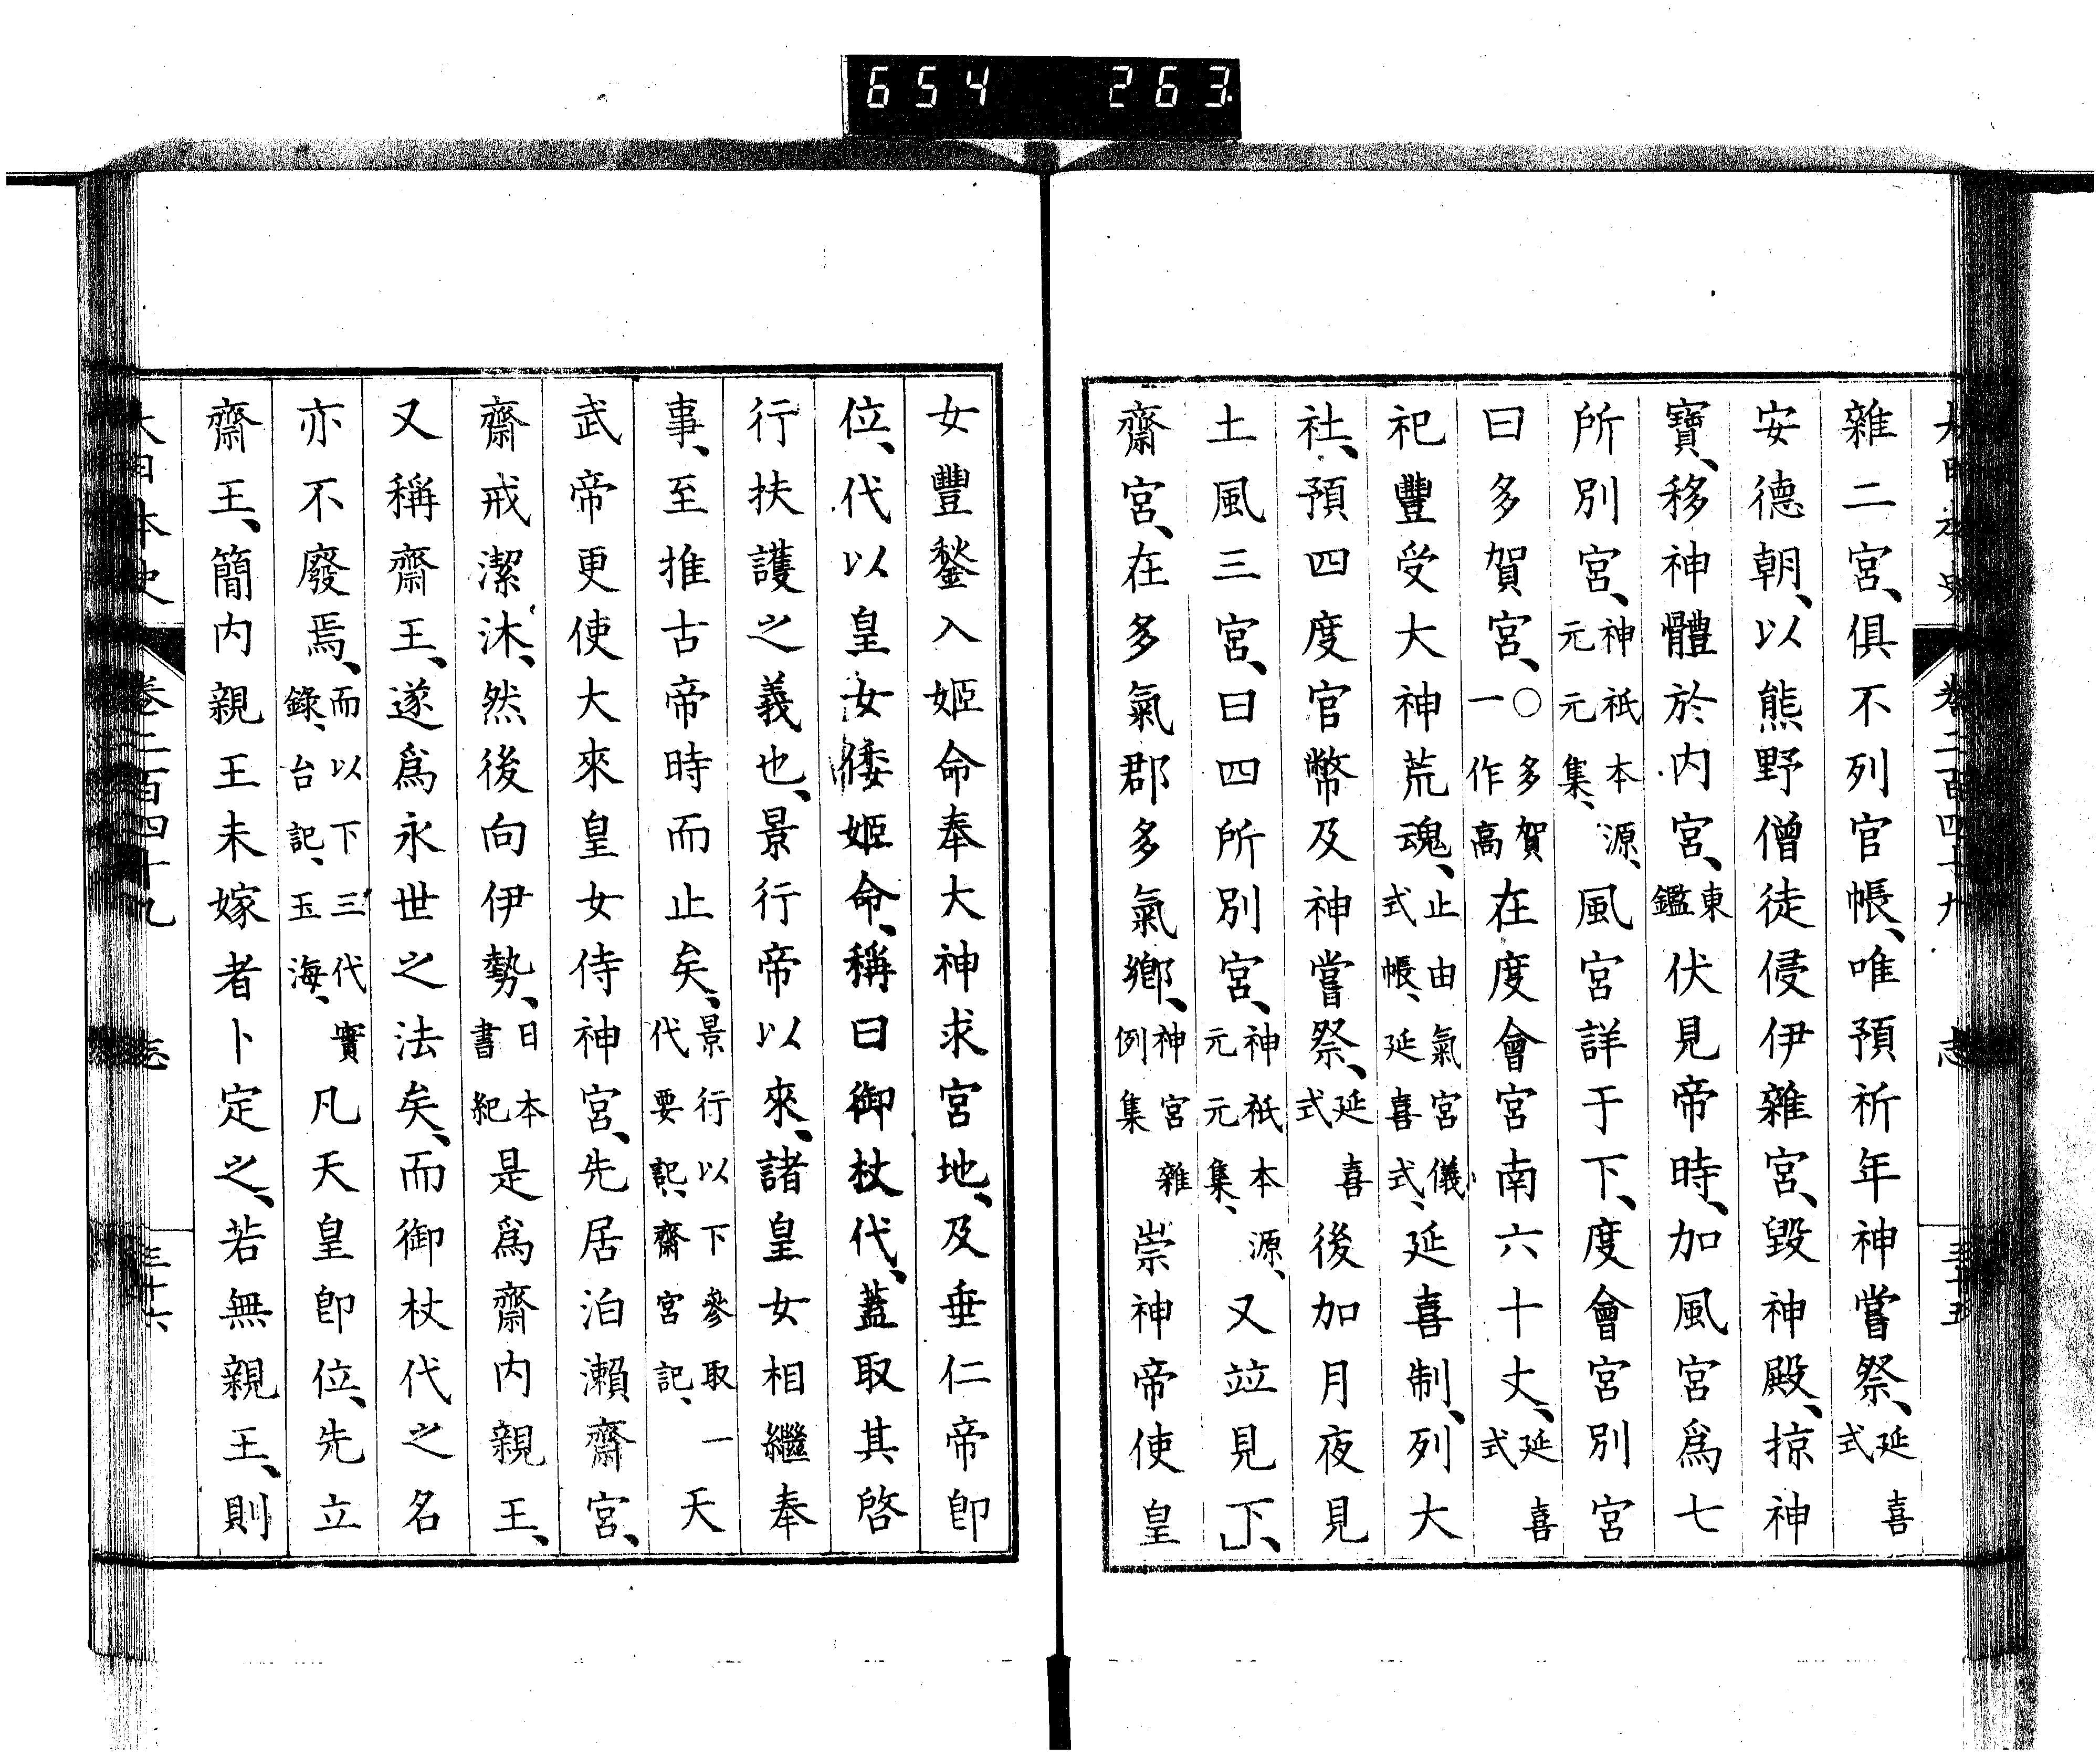 654 263
大日本史 卷二百四十九 志 三十五
雜二宮、俱不列官帳、唯預祈年神嘗祭、延喜式
安德朝、以熊野僧徒侵伊雜宮、毀神殿、掠神
寶、移神體於內宮、東鑑伏見帝時、加風宮爲七
所別宮、神祇本源、元元集、風宮詳于下、度會宮別宮
曰多賀宮、○多賀一作高在度會宮南六十丈、延喜式
祀豐受大神荒魂、止由氣宮儀式帳、延喜式、延喜制、列大
社、預四度官幣及神嘗祭、延喜式後加月夜見
土風三宮、曰四所別宮、神祇本源、元元集、又竝見下、
齋宮、在多氣郡多氣鄉、神宮雜例集崇神帝使皇
女豐鍬入姬命奉大神求宮地、及垂仁帝卽
位、代以皇女倭姬命、稱曰御杖代、蓋取其啓
行扶護之義也、景行帝以來、諸皇女相繼奉
事、至推古帝時而止矣、景行以下參取一代要記、齋宮記、天
武帝更使大來皇女侍神宮、先居泊瀨齋宮、
齋戒潔沐、然後向伊勢、日本書紀是爲齋內親王、
又稱齋王、遂爲永世之法矣、而御杖代之名
亦不廢焉、而以下三代實錄、台記、玉海、凡天皇卽位、先立
齋王、簡內親王未嫁者卜定之、若無親王、則
大日本史 卷二百四十九 志 三十六